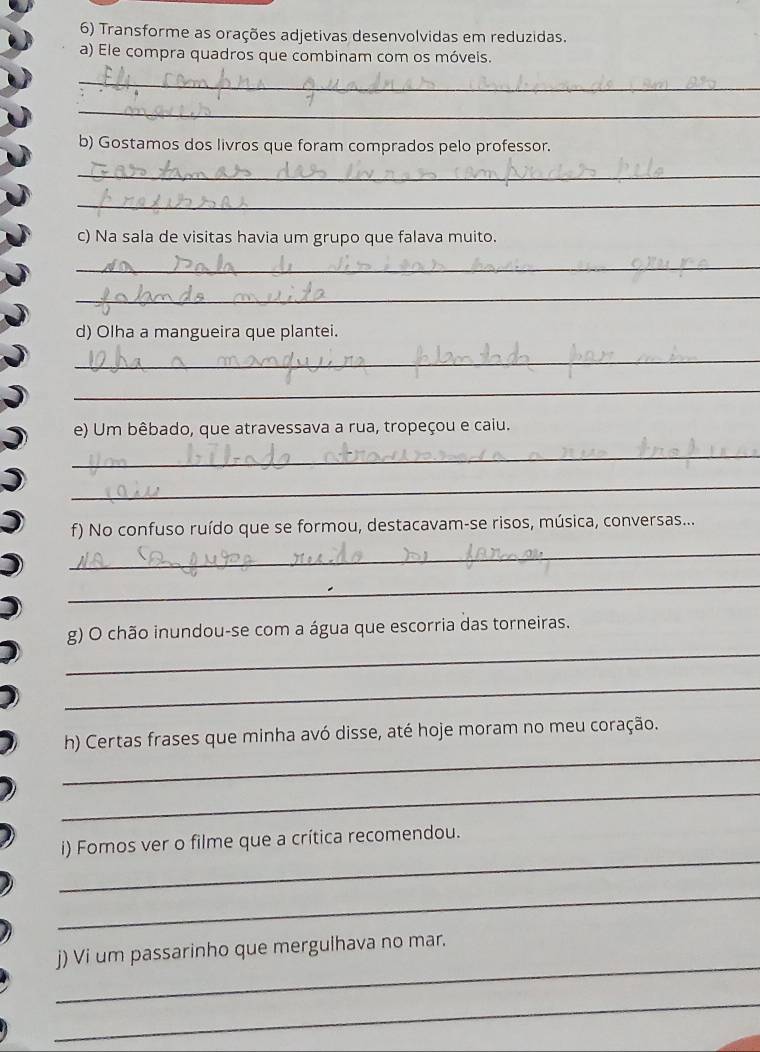 6) Transforme as orações adjetivas desenvolvidas em reduzidas.
a) Ele compra quadros que combinam com os móveis.
Ele compra quadros combinando com os
moveis
b) Gostamos dos livros que foram comprados pelo professor.
Gostamos dos livros comprados pelo
professor
c) Na sala de visitas havia um grupo que falava muito.
Na sala de visitas havia um grupo
falando muito
d) Olha a mangueira que plantei.
Olha a mangueira plantada por mim
e) Um bêbado, que atravessava a rua, tropeçou e caiu.
Um bêbado a rua
caiu
f) No confuso ruído que se formou, destacavam-se risos, música, conversas...
No ruido
g) O chão inundou-se com a água que escorria das torneiras.
h) Certas frases que minha avó disse, até hoje moram no meu coração.
i) Fomos ver o filme que a crítica recomendou.
j) Vi um passarinho que mergulhava no mar.